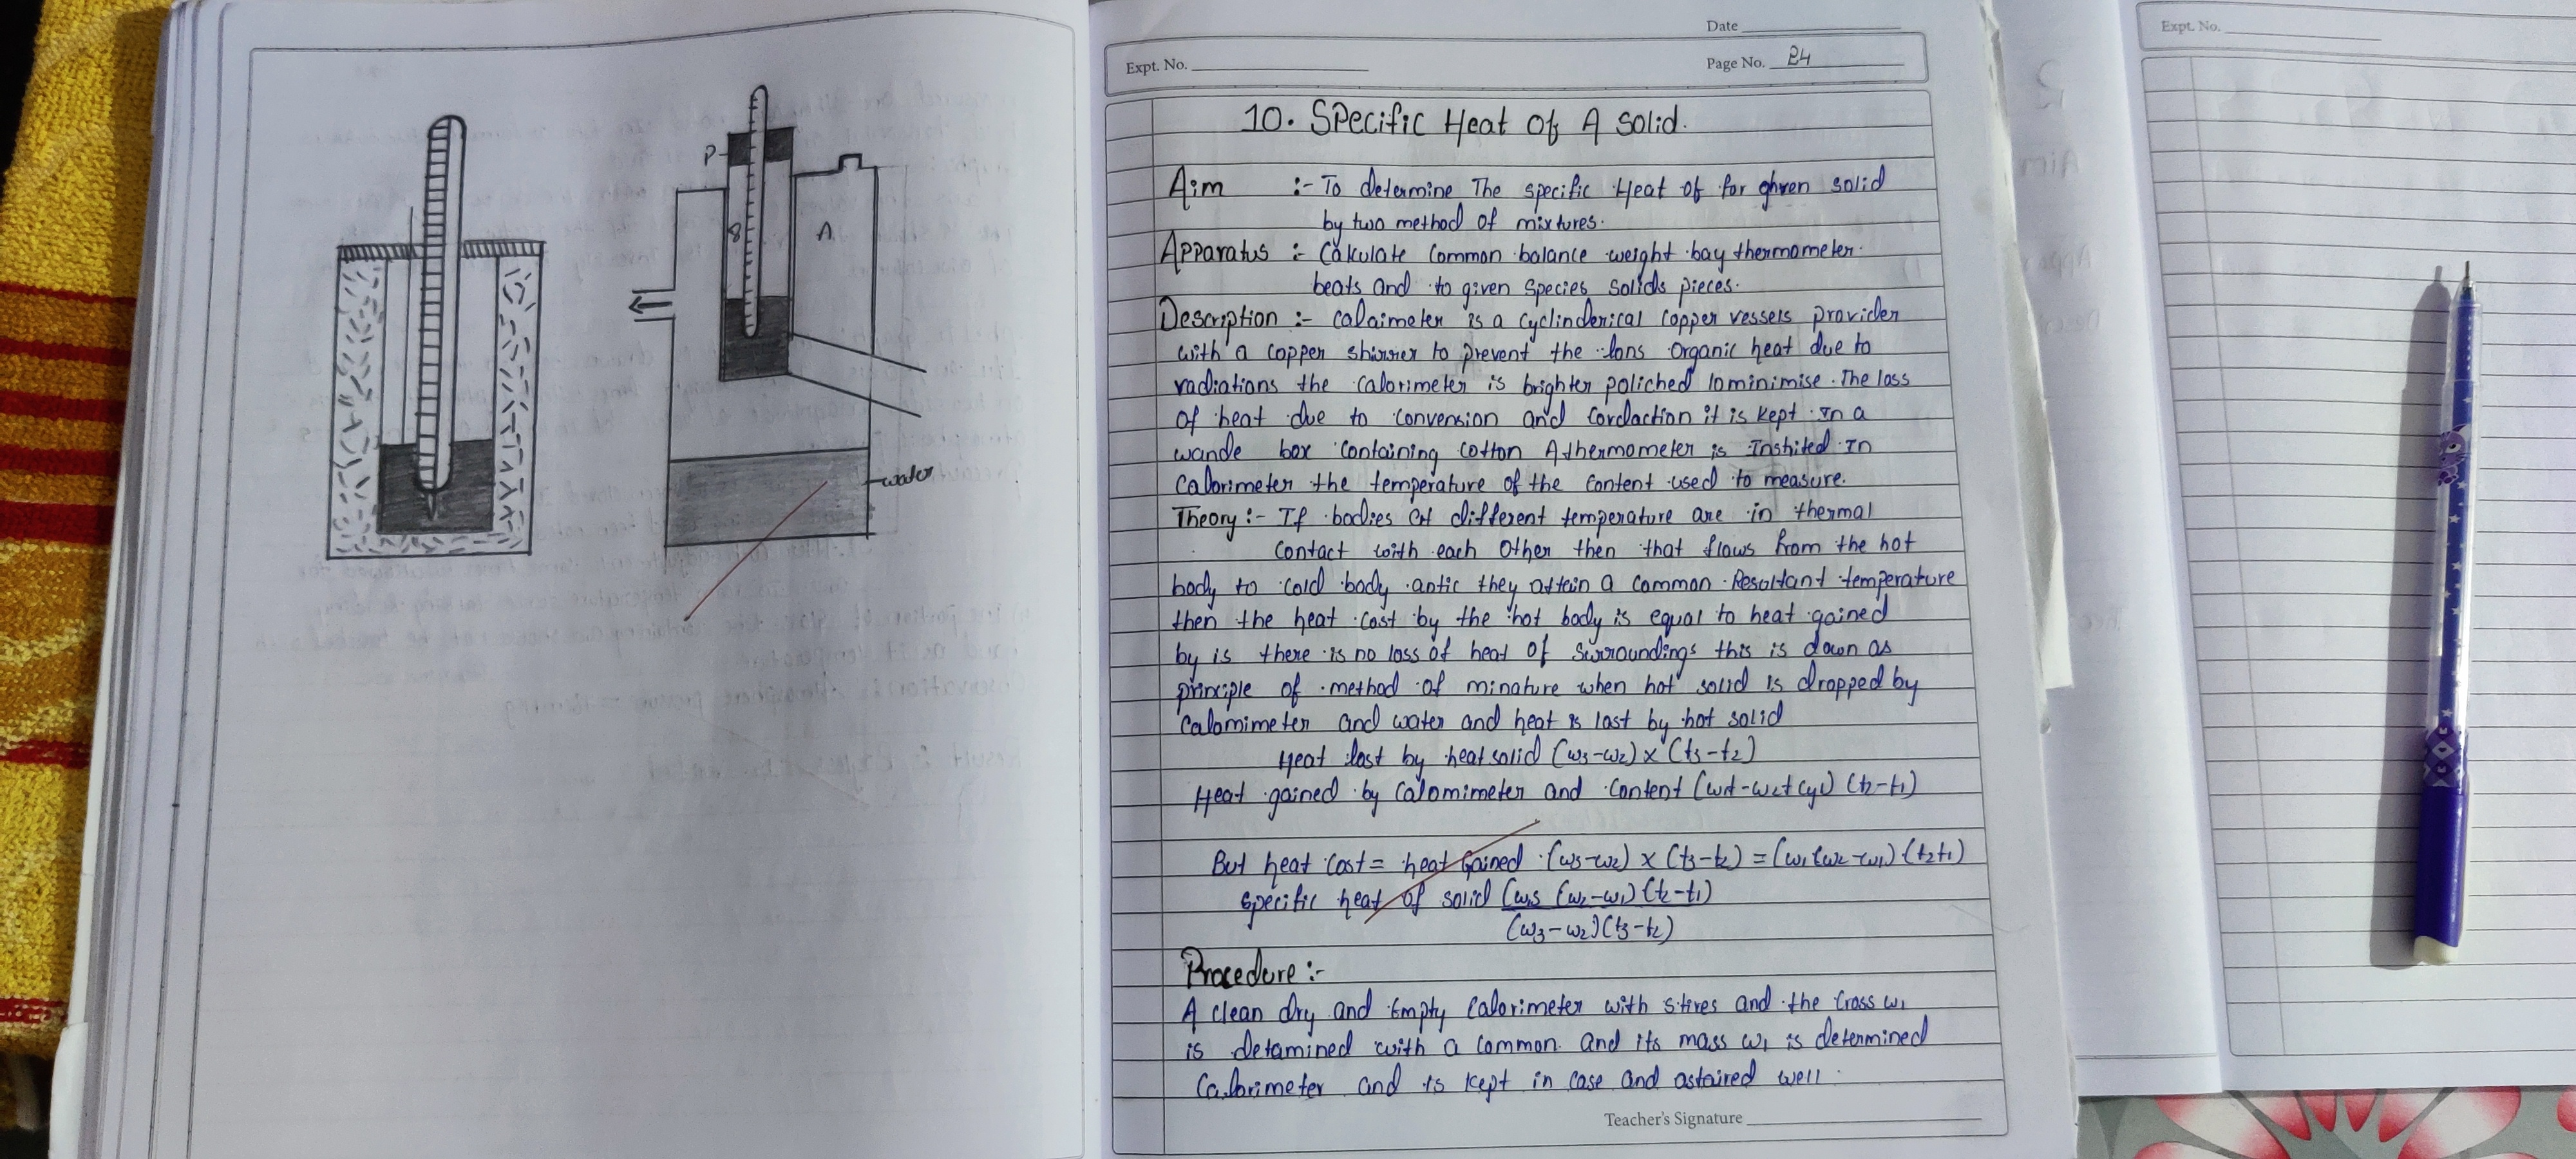 P
8
A
water
Date
Expt. No.
Page No. 24
10. Specific Heat of A solid.
Aim :- To determine The specific Heat of for given solid
by two method of mixtures.
Apparatus :- Calculate Common balance weight bay thermometer.
beats and to given species solids pieces.
Description :- calaimeter is a cyclinderical copper vessels provider
with a copper shirrer to prevent the lons organic heat due to
radiations the calorimeter is brighter poliched lominimise. The loss
of heat due to conversion and cordaction it is kept in a
wande box containing cotton A thermometer is Inshited In
Calorimeter the temperature of the content used to measure.
Theory :- If bodies of different temperature are in thermal
contact with each other then that flows from the hot
body to cold body antic they attain a common Resultant temperature
then the heat cost by the hot body is equal to heat gained
by is there is no loss of heat of surroundings this is down as
principle of method of minature when hot solid is dropped by
calomimeter and water and heat is last by hot solid
Heat lost by heat solid (w3-w2) x (t3-t2)
Heat gained by calomimeter and content (t2-t1)
But heat cost = heat gained (w3-w2) x (t3-t2) = (t2t1)
specific heat of solid (w2-w1) (t2-t1)
(w3-w2)(t3-t2)
Procedure :-
A clean dry and Empty calorimeter with stires and the Crass w1
is detamined with a common and its mass w1 is determined
Calorimeter and is kept in case and astaired well.
Teacher's Signature
Expt. No.